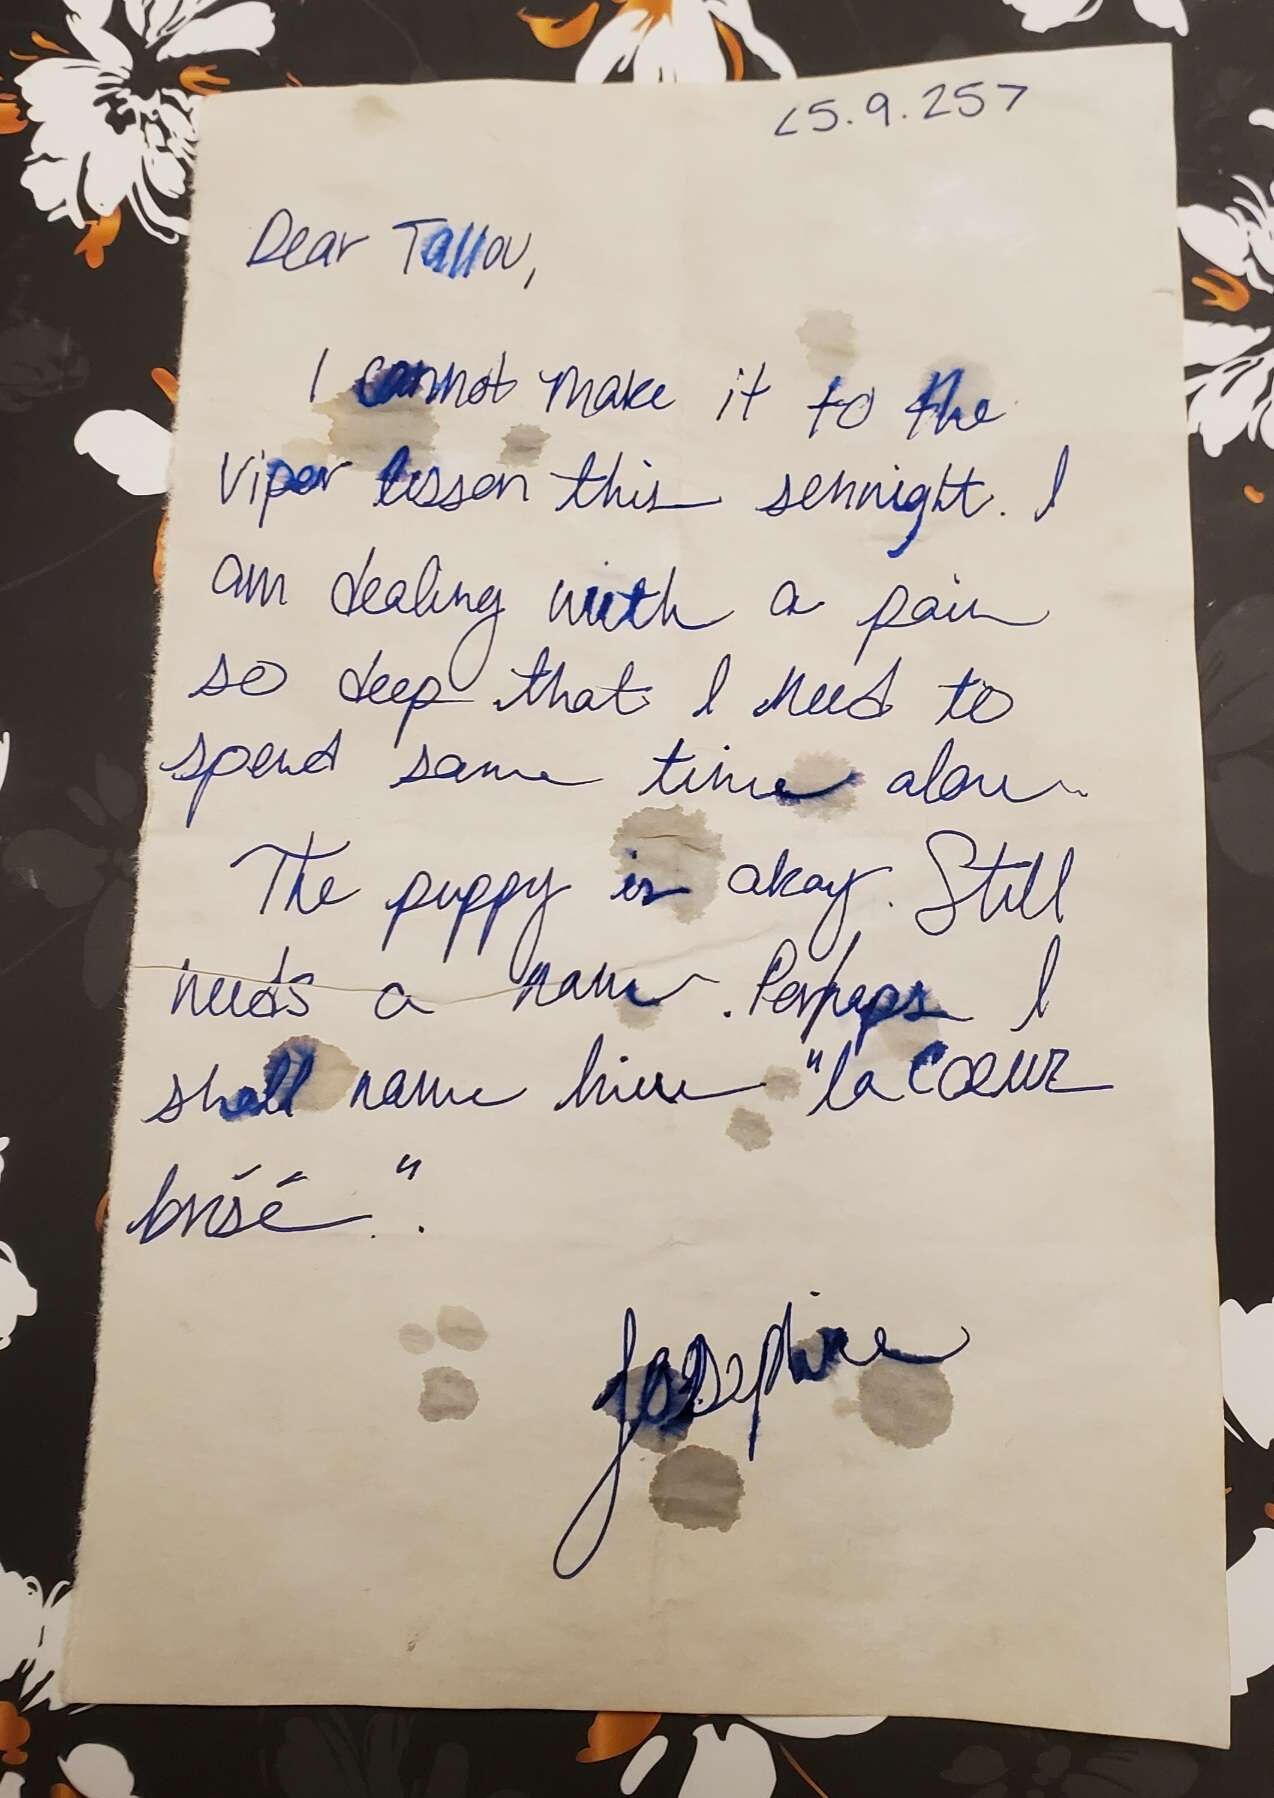 <5.9.257
Dear Tallou,
I cannot make it to the
viper lesson this sennight. I
am dealing with a pain
so deep that I need to
spend some time alone.
The puppy is okay. Still
needs a name. Perhaps I
shall name him "la Cœur
brisé.".
Josephine